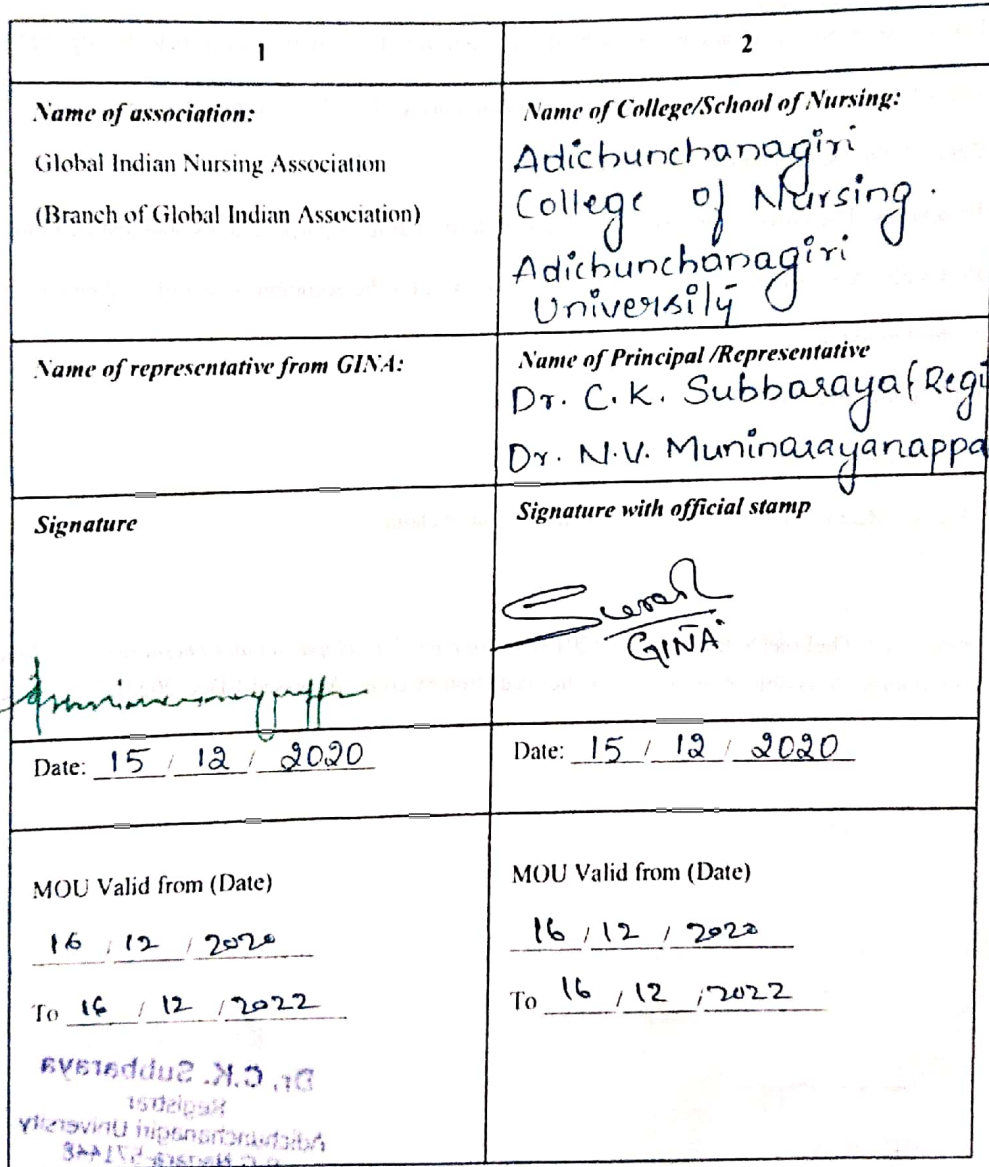 1
2
Name of association:
Global Indian Nursing Association
(Branch of Global Indian Association)
Name of College/School of Nursing:
Adichunchanagiri
College of Nursing.
Adichunchanagiri
University
Name of representative from GINA:
Name of Principal /Representative
Dr. C.K. Subbaraya (Regi
Dr. N.V. Muninarayanappa
Signature
Signature with official stamp
Suresh
GINA
Date: 15 / 12 / 2020
Date: 15 / 12 / 2020
MOU Valid from (Date)
16 / 12 / 2020
To 16 / 12 / 2022
MOU Valid from (Date)
16 / 12 / 2020
To 16 / 12 / 2022
Dr. C.K. Subbaraya
Registrar
Adichunchanagiri University
Nagara-571448